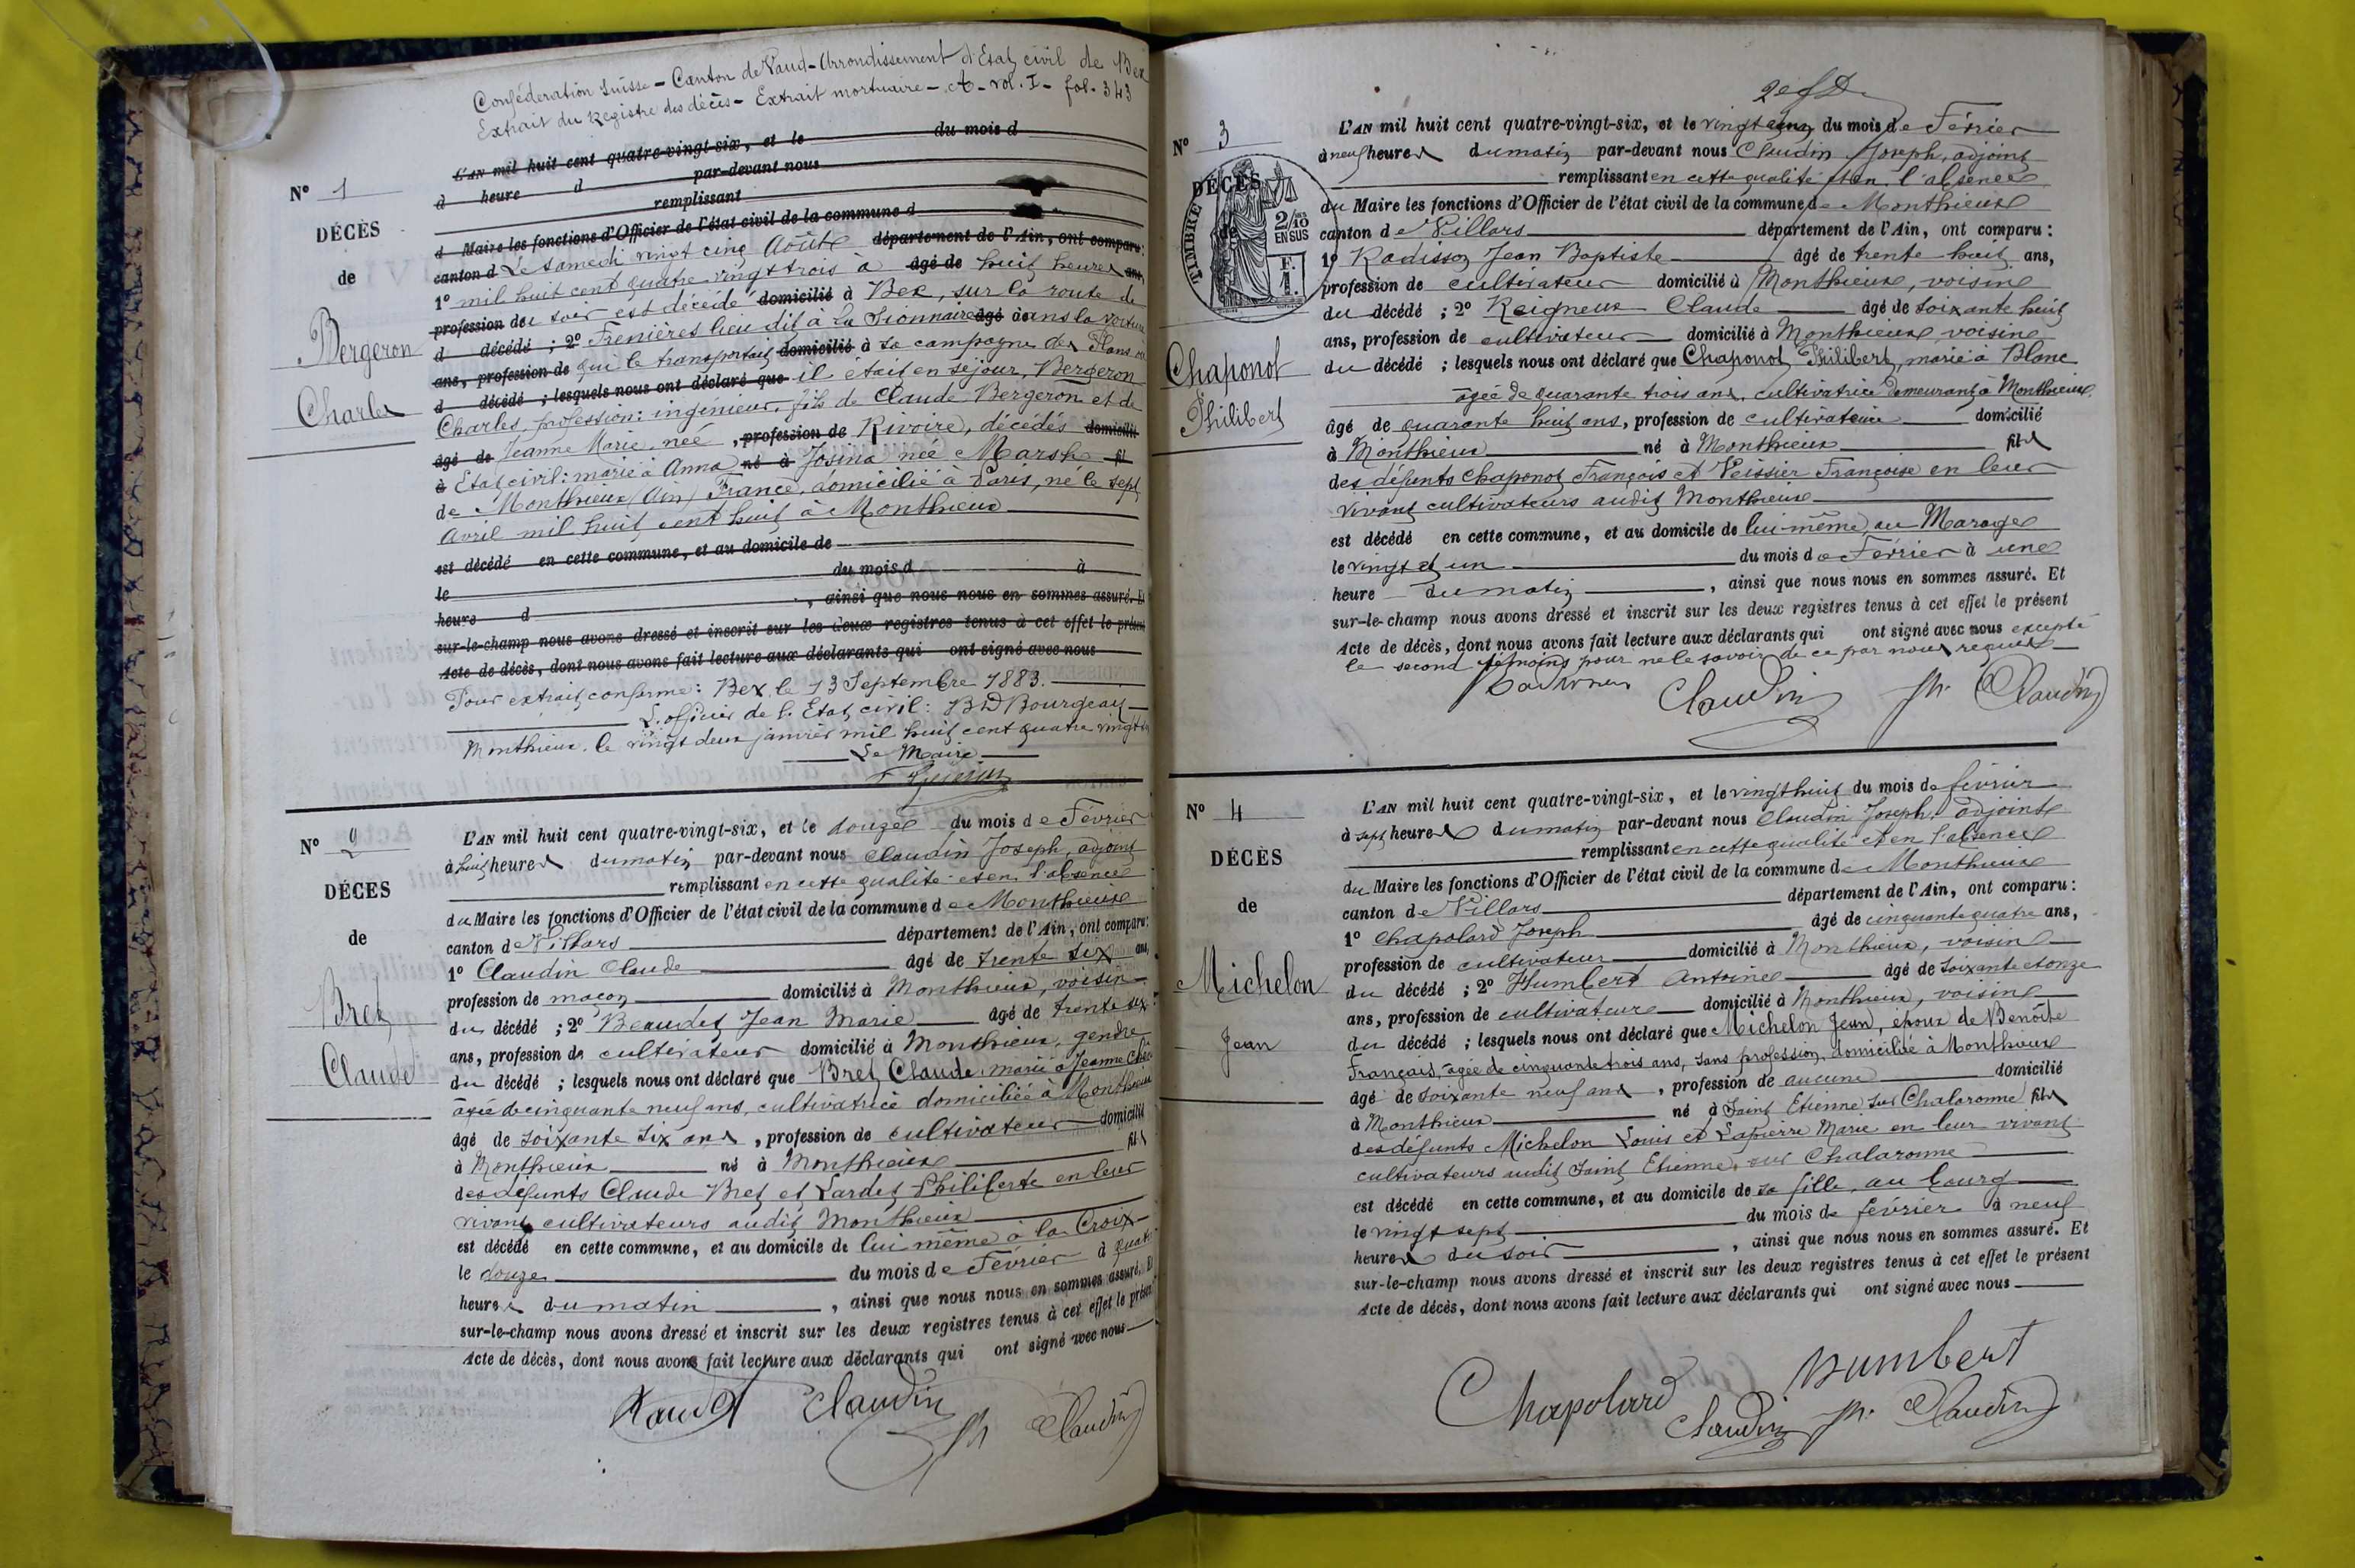 Confédération Suisse - Canton de Vaud - Arrondissement d'Etat civil de Bex
Extrait du Registre des décès - Extrait mortuaire - A - vol. I - fol. 343
N° 1
DÉCÈS
de
Bergeron
Charles
L'AN mil huit cent quatre-vingt-six, et le du mois d
à heure d par-devant nous
remplissant
d Maire les fonctions d'Officier de l'état civil de la commune d
canton d Le samedi vingt cinq Août département de l'Ain, ont comparu:
1° mil huit cent quatre vingt trois à âgé de huit heures ans,
profession de du soir est décédé domicilié à Bex, sur la route de
d décédé ; 2° Frenières lieu dit à la âgé de dans la voiture
ans, profession de qui le transportait domicilié à sa campagne des Plans où
d décédé ; lesquels nous ont déclaré que il était en séjour, Bergeron
Charles, profession: ingénieur, fils de Claude Bergeron et de
âgé de Jeanne Marie née , profession de Rivoire, décédés domicilié
à Etat civil: marié à Anna né à Josina née Marsh fil
de Monthieux (Ain) France, domicilié à Paris, né le sept
avril mil huit cent huit à Monthieux
est décédé en cette commune, et au domicile de
le du mois d à
heure d , ainsi que nous nous en sommes assuré. Et
sur-le-champ nous avons dressé et inscrit sur les deux registres tenus à cet effet le présent
Acte de décès, dont nous avons fait lecture aux déclarants qui ont signé avec nous
Pour extrait conforme: Bex, le 13 Septembre 1883.
L'officier de l'Etat civil:
Monthieux, le vingt deux janvier mil huit cent quatre vingt
Le Maire
N° 2
DÉCÈS
de
Bret
Claude
L'AN mil huit cent quatre-vingt-six, et le douze du mois de Février
à huit heures du matin par-devant nous Claudin Joseph, adjoint
remplissant en cette qualité et en l'absence
du Maire les fonctions d'Officier de l'état civil de la commune de Monthieux
canton de Villars département de l'Ain, ont comparu:
1° Claudin Claude âgé de trente six ans,
profession de maçon domicilié à Monthieux, voisin
du décédé ; 2° Beaudet Jean Marie âgé de trente six
ans, profession de cultivateur domicilié à Monthieux, gendre
du décédé ; lesquels nous ont déclaré que Bret Claude, marié à Jeanne
âgée de cinquante neuf ans, cultivatrice domiciliée à Monthieux
âgé de soixante six ans , profession de cultivateur domicilié
à Monthieux né à Monthieux fils
des défunts Claude Bret et Lardet Philiberte en leur
vivant cultivateurs audit Monthieux
est décédé en cette commune, et au domicile de lui même à la Croix
le douze du mois de Février à quatre
heures du matin , ainsi que nous nous en sommes assuré. Et
sur-le-champ nous avons dressé et inscrit sur les deux registres tenus à cet effet le présent
Acte de décès, dont nous avons fait lecture aux déclarants qui ont signé avec nous
Claudin
Claudin
N° 3
TIMBRE
2/10 EN SUS
DÉCÈS
de
Chaponot
Philibert
L'AN mil huit cent quatre-vingt-six, et le vingt cinq du mois de Février
à neuf heures du matin par-devant nous Claudin Joseph, adjoint
remplissant en cette qualité et en l'absence
du Maire les fonctions d'Officier de l'état civil de la commune de Monthieux
canton de Villars département de l'Ain, ont comparu :
1° Radisson Jean Baptiste âgé de trente huit ans,
profession de cultivateur domicilié à Monthieux, voisin
du décédé ; 2° Reigneux Claude âgé de soixante huit
ans, profession de cultivateur domicilié à Monthieux voisin
du décédé ; lesquels nous ont déclaré que Chaponot Philibert, marié à Blanc
âgée de quarante trois ans, cultivatrice demeurant à Monthieux
âgé de quarante huit ans, profession de cultivateur domicilié
à Monthieux né à Monthieux fils
des défunts Chaponot François et Veissier Françoise en leur
vivant cultivateurs audit Monthieux
est décédé en cette commune, et au domicile de lui-même au Marage
le vingt et un du mois de Février à une
heure du matin , ainsi que nous nous en sommes assuré. Et
sur-le-champ nous avons dressé et inscrit sur les deux registres tenus à cet effet le présent
Acte de décès, dont nous avons fait lecture aux déclarants qui ont signé avec nous excepté
le second témoins pour ne le savoir de ce par nous requis
Claudin
Claudin
N° 4
DÉCÈS
de
Michelon
Jean
L'AN mil huit cent quatre-vingt-six, et le vingt huit du mois de février
à sept heures du matin par-devant nous Claudin Joseph, adjoint
remplissant en cette qualité et en l'absence
du Maire les fonctions d'Officier de l'état civil de la commune de Monthieux
canton de Villars département de l'Ain, ont comparu :
1° Chapolard Joseph âgé de cinquante quatre ans,
profession de cultivateur domicilié à Monthieux, voisin
du décédé ; 2° Humbert Antoine âgé de soixante et onze
ans, profession de cultivateur domicilié à Monthieux, voisin
du décédé ; lesquels nous ont déclaré que Michelon Jean, époux de Benoîte
Français, âgée de cinquante trois ans, sans profession, domiciliée à Monthieux
âgé de soixante neuf ans , profession de aucune domicilié
à Monthieux né à Saint Etienne sur Chalaronne fils
des défunts Michelon Louis et Lapierre Marie en leur vivant
cultivateurs audit Saint Etienne sur Chalaronne
est décédé en cette commune, et au domicile de sa fille, au bourg
le vingt sept du mois de février à neuf
heures du soir , ainsi que nous nous en sommes assuré. Et
sur-le-champ nous avons dressé et inscrit sur les deux registres tenus à cet effet le présent
Acte de décès, dont nous avons fait lecture aux déclarants qui ont signé avec nous
Humbert
Chapolard
Claudin
Claudin